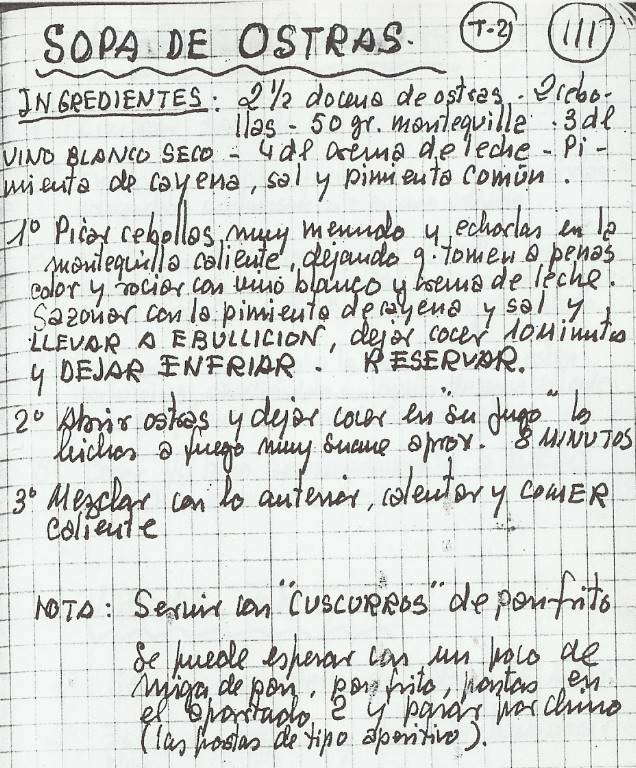 SOPA DE OSTRAS. T-2 111
INGREDIENTES: 2 1/2 docena de ostras - 2 cebo-
llas - 50 gr. mantequilla - 3 dl
VINO BLANCO SECO - 4 dl crema de leche - Pi-
mienta de cayena, sal y pimienta común.
1º Picar cebollas muy menudo y echarlas en la
mantequilla caliente, dejando q. tomen a penas
color y rociar con vino blanco y crema de leche.
Sazonar con la pimienta de cayena y sal y
LLEVAR A EBULLICION, dejar cocer 10 Minutos
y DEJAR ENFRIAR. RESERVAR.
2º Abrir ostras y dejar cocer en "su jugo" los
bichos a fuego muy suave aprox. 8 MINUTOS
3º Mezclar con lo anterior, calentar y COMER
caliente
NOTA: Servir con "CUSCURROS" de pan frito
Se puede espesar con un poco de
miga de pan, pan frito, pastas en
el apartado 2 y pasar por chino
(las pastas de tipo aperitivo).